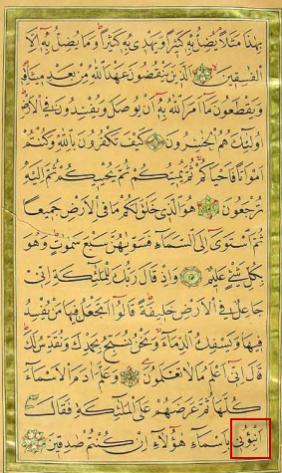 بِهٰذَا مَثَلًا يُضِلُّ بِهِ كَثِيرًا وَيَهْدِي بِهِ كَثِيرًا وَمَا يُضِلُّ بِهِ إِلَّا
الْفَاسِقِينَ الَّذِينَ يَنْقُضُونَ عَهْدَ اللّٰهِ مِنْ بَعْدِ مِيثَاقِهِ
وَيَقْطَعُونَ مَا أَمَرَ اللّٰهُ بِهِ أَنْ يُوصَلَ وَيُفْسِدُونَ فِي الْأَرْضِ
أُولٰئِكَ هُمُ الْخَاسِرُونَ كَيْفَ تَكْفُرُونَ بِاللّٰهِ وَكُنْتُمْ
أَمْوَاتًا فَأَحْيَاكُمْ ثُمَّ يُمِيتُكُمْ ثُمَّ يُحْيِيكُمْ ثُمَّ إِلَيْهِ
تُرْجَعُونَ هُوَ الَّذِي خَلَقَ لَكُمْ مَا فِي الْأَرْضِ جَمِيعًا
ثُمَّ اسْتَوٰى إِلَى السَّمَاءِ فَسَوّٰيهُنَّ سَبْعَ سَمٰوَاتٍ وَهُوَ
بِكُلِّ شَيْءٍ عَلِيمٌ وَإِذْ قَالَ رَبُّكَ لِلْمَلٰئِكَةِ إِنِّي
جَاعِلٌ فِي الْأَرْضِ خَلِيفَةً قَالُوا أَتَجْعَلُ فِيهَا مَنْ يُفْسِدُ
فِيهَا وَيَسْفِكُ الدِّمَاءَ وَنَحْنُ نُسَبِّحُ بِحَمْدِكَ وَنُقَدِّسُ لَكَ
قَالَ إِنِّي أَعْلَمُ مَا لَا تَعْلَمُونَ وَعَلَّمَ آدَمَ الْأَسْمَاءَ
كُلَّهَا ثُمَّ عَرَضَهُمْ عَلَى الْمَلٰئِكَةِ فَقَالَ
أَنْبِئُونِي بِأَسْمَاءِ هٰؤُلَاءِ إِنْ كُنْتُمْ صَادِقِينَ